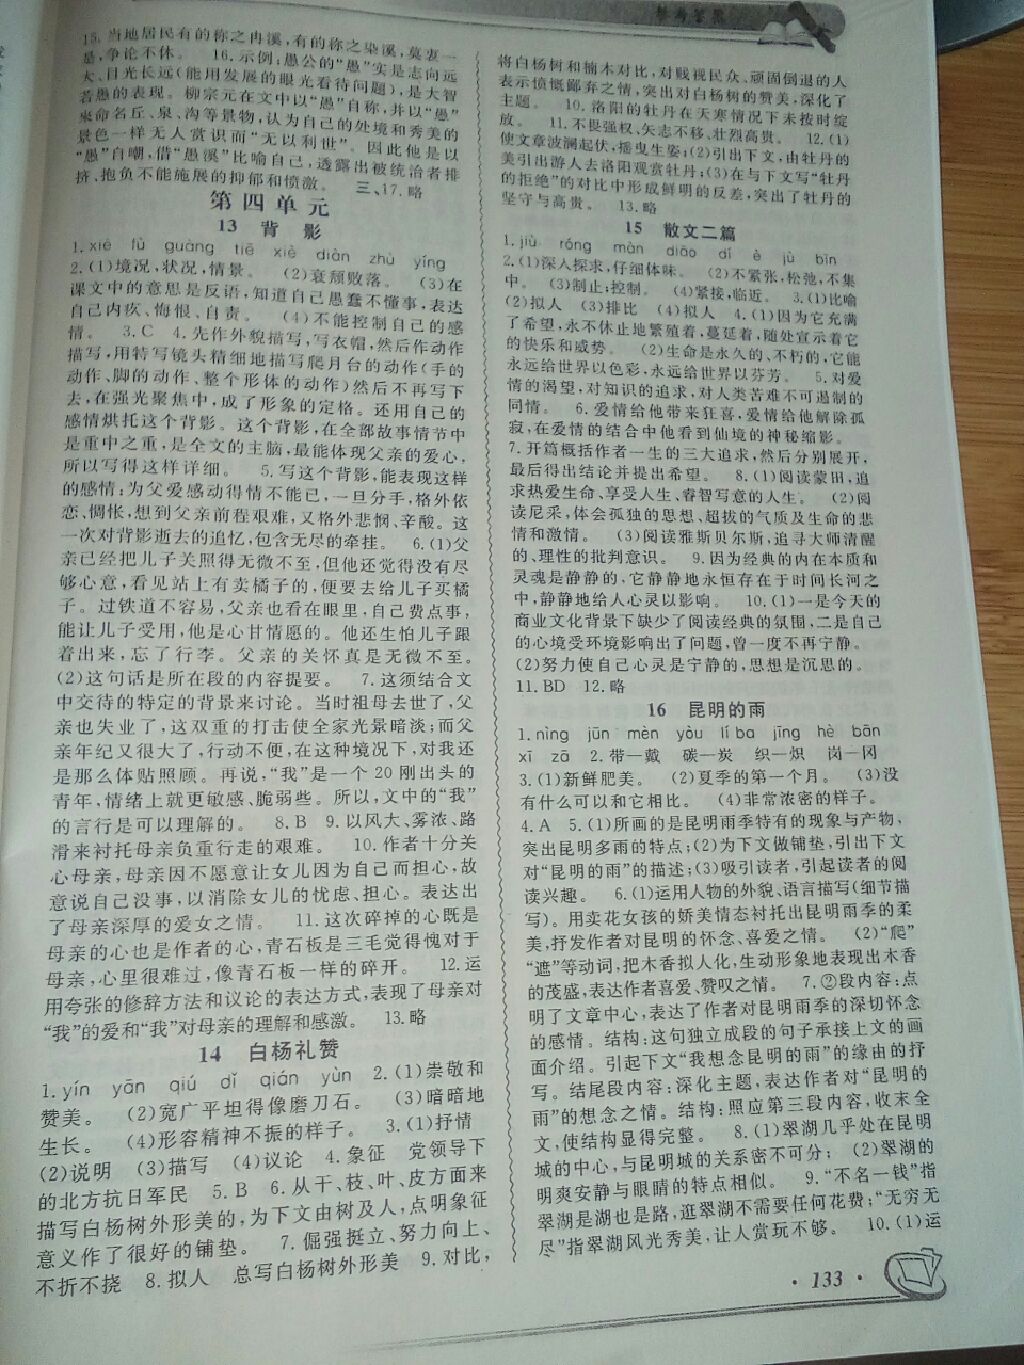 参考答案
15.当地居民有的称之冉溪,有的称之染溪,莫衷一
是,争论不休。 16.示例:愚公的“愚”实是志向远
大、目光长远(能用发展的眼光看待问题),是大智
若愚的表现。柳宗元在文中以“愚”自称,并以“愚”
来命名丘、泉、沟等景物,认为自己的处境和秀美的
景色一样无人赏识而“无以利世”。因此他是以
“愚”自嘲,借“愚溪”比喻自己,透露出被统治者排
挤、抱负不能施展的抑郁和愤激。 三、17.略
第四单元
13 背 影
1.xié fù guàng tiē xiè diàn zhù yǐng
2.(1)境况,状况,情景。 (2)衰颓败落。 (3)在
课文中的意思是反语,知道自己愚蠢不懂事,表达
自己内疚、悔恨、自责。 (4)不能控制自己的感
情。 3.C 4.先作外貌描写,写衣帽,然后作动作
描写,用特写镜头精细地描写爬月台的动作(手的
动作、脚的动作、整个形体的动作)然后不再写下
去,在强光聚焦中,成了形象的定格。还用自己的
感情烘托这个背影。这个背影,在全部故事情节中
是重中之重,是全文的主脑,最能体现父亲的爱心,
所以写得这样详细。 5.写这个背影,能表现这样
的感情:为父爱感动得情不能已,一旦分手,格外依
恋、惆怅,想到父亲前程艰难,又格外悲悯、辛酸。这
一次对背影逝去的追忆,包含无尽的牵挂。 6.(1)父
亲已经把儿子关照得无微不至,但他还觉得没有尽
够心意,看见站上有卖橘子的,便要去给儿子买橘
子。过铁道不容易,父亲也看在眼里,自己费点事,
能让儿子受用,他是心甘情愿的。他还生怕儿子跟
着出来,忘了行李。父亲的关怀真是无微不至。
(2)这句话是所在段的内容提要。 7.这须结合文
中交待的特定的背景来讨论。当时祖母去世了,父
亲也失业了,这双重的打击使全家光景暗淡;而父
亲年纪又很大了,行动不便,在这种境况下,对我还
是那么体贴照顾。再说,“我”是一个20刚出头的
青年,情绪上就更敏感、脆弱些。所以,文中的“我”
的言行是可以理解的。 8.B 9.以风大、雾浓、路
滑来衬托母亲负重行走的艰难。 10.作者十分关
心母亲,母亲因不愿意让女儿因为自己而担心,故
意说自己没事,以消除女儿的忧虑、担心。表达出
了母亲深厚的爱女之情。 11.这次碎掉的心既是
母亲的心也是作者的心,青石板是三毛觉得愧对于
母亲,心里很难过,像青石板一样的碎开。 12.运
用夸张的修辞方法和议论的表达方式,表现了母亲对
“我”的爱和“我”对母亲的理解和感激。 13.略
14 白杨礼赞
1.yín yān qiú dǐ qián yùn 2.(1)崇敬和
赞美。 (2)宽广平坦得像磨刀石。 (3)暗暗地
生长。 (4)形容精神不振的样子。 3.(1)抒情
(2)说明 (3)描写 (4)议论 4.象征 党领导下
的北方抗日军民 5.B 6.从干、枝、叶、皮方面来
描写白杨树外形美的,为下文由树及人,点明象征
意义作了很好的铺垫。 7.倔强挺立、努力向上、
不折不挠 8.拟人 总写白杨树外形美 9.对比,
将白杨树和楠木对比,对贱视民众、顽固倒退的人
表示愤慨鄙弃之情,突出对白杨树的赞美,深化了
主题。 10.洛阳的牡丹在天寒情况下未按时绽
放。 11.不畏强权、矢志不移、壮烈高贵。 12.(1)
使文章波澜起伏,摇曳生姿;(2)引出下文,由牡丹的
美引出游人去洛阳观赏牡丹;(3)在与下文写“牡丹
的拒绝”的对比中形成鲜明的反差,突出了牡丹的
坚守与高贵。 13.略
15 散文二篇
1.jiù róng màn diāo dǐ è jù bīn
2.(1)深入探求,仔细体味。 (2)不紧张,松弛,不集
中。 (3)制止;控制。 (4)紧接,临近。 3.(1)比喻
(2)拟人 (3)排比 (4)拟人 4.(1)因为它充满
了希望,永不休止地繁殖着,蔓延着,随处宣示着它
的快乐和威势。 (2)生命是永久的、不朽的,它能
永远给世界以色彩,永远给世界以芬芳。 5.对爱
情的渴望,对知识的追求,对人类苦难不可遏制的
同情。 6.爱情给他带来狂喜,爱情给他解除孤
寂,在爱情的结合中他看到仙境的神秘缩影。
7.开篇概括作者一生的三大追求,然后分别展开,
最后得出结论并提出希望。 8.(1)阅读蒙田,追
求热爱生命、享受人生、睿智写意的人生。 (2)阅
读尼采,体会孤独的思想、超拔的气质及生命的悲
情和激情。 (3)阅读雅斯贝尔斯,追寻大师清醒
的、理性的批判意识。 9.因为经典的内在本质和
灵魂是静静的,它静静地永恒存在于时间长河之
中,静静地给人心灵以影响。 10.(1)一是今天的
商业文化背景下缺少了阅读经典的氛围,二是自己
的心境受环境影响出了问题,曾一度不再宁静。
(2)努力使自己心灵是宁静的,思想是沉思的。
11.BD 12.略
16 昆明的雨
1.nìng jūn mèn yòu lí ba jīng hè bān
xī zā 2.带—戴 碳—炭 织—炽 岗—冈
3.(1)新鲜肥美。 (2)夏季的第一个月。 (3)没
有什么可以和它相比。 (4)非常浓密的样子。
4.A 5.(1)所画的是昆明雨季特有的现象与产物,
突出昆明多雨的特点;(2)为下文做铺垫,引出下文
对“昆明的雨”的描述;(3)吸引读者,引起读者的阅
读兴趣。 6.(1)运用人物的外貌、语言描写(细节描
写)。用卖花女孩的娇美情态衬托出昆明雨季的柔
美,抒发作者对昆明的怀念、喜爱之情。 (2)“爬”
“遮”等动词,把木香拟人化,生动形象地表现出木香
的茂盛,表达作者喜爱、赞叹之情。 7.②段内容:点
明了文章中心,表达了作者对昆明雨季的深切怀念
的感情。结构:这句独立成段的句子承接上文的画
面介绍。引起下文“我想念昆明的雨”的缘由的抒
写。结尾段内容:深化主题,表达作者对“昆明的
雨”的想念之情。结构:照应第三段内容,收束全
文,使结构显得完整。 8.(1)翠湖几乎处在昆明
城的中心,与昆明城的关系密不可分; (2)翠湖的
明爽安静与眼睛的特点相似。 9.“不名一钱”指
翠湖是湖也是路,逛翠湖不需要任何花费;“无穷无
尽”指翠湖风光秀美,让人赏玩不够。 10.(1)运
· 133 ·